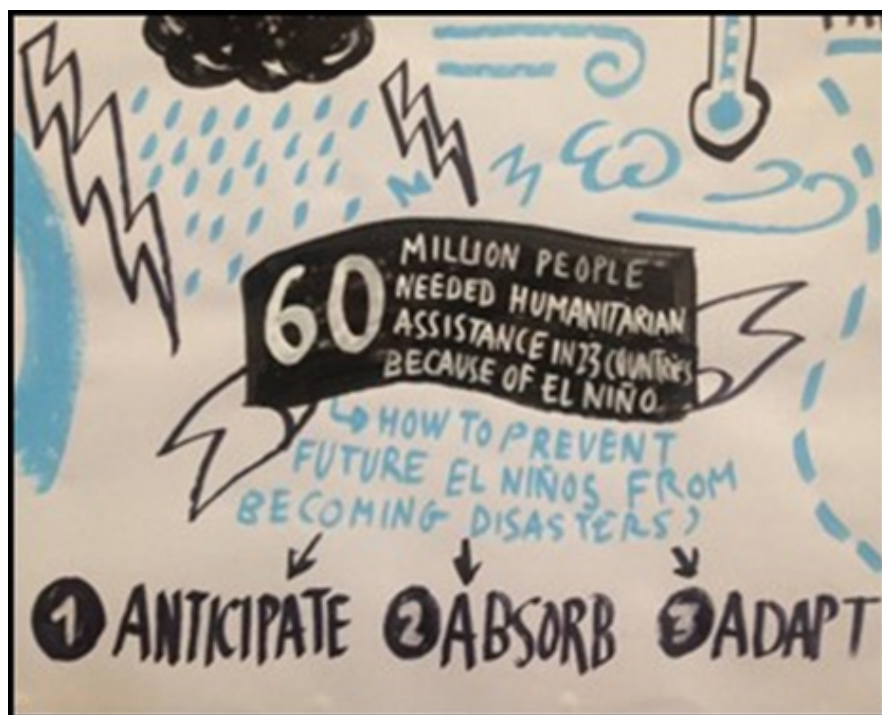 60 MILLION PEOPLE
NEEDED HUMANITARIAN
ASSISTANCE IN 23 COUNTRIES
BECAUSE OF EL NIÑO
↳ HOW TO PREVENT
FUTURE EL NIÑOS FROM
BECOMING DISASTERS?
1 ANTICIPATE 2 ABSORB 3 ADAPT